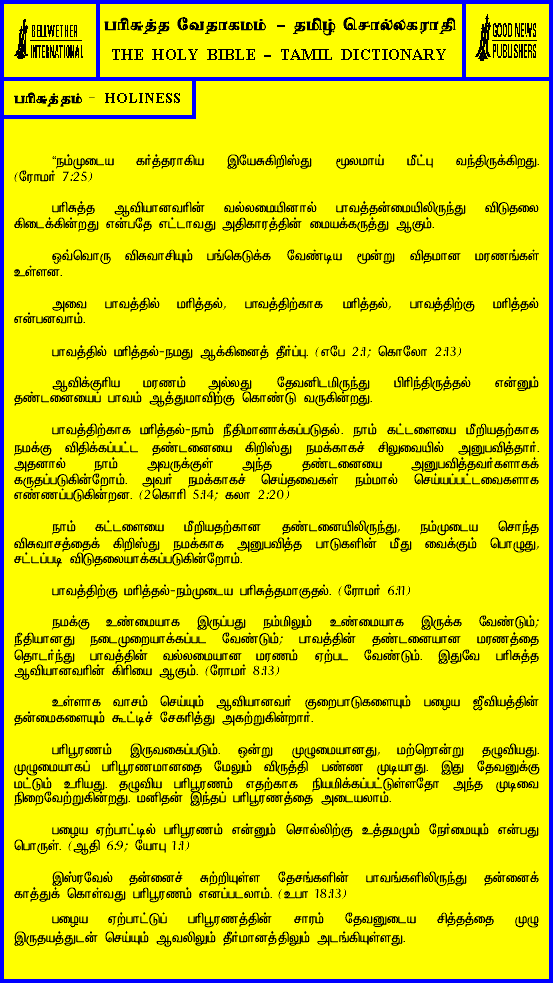 BELLWETHER
INTERNATIONAL
பரிசுத்த வேதாகமம் – தமிழ் சொல்லகராதி
THE HOLY BIBLE – TAMIL DICTIONARY
GOOD NEWS
PUBLISHERS
பரிசுத்தம் – HOLINESS
“நம்முடைய கர்த்தராகிய இயேசுகிறிஸ்து மூலமாய் மீட்பு வந்திருக்கிறது.
(ரோமர் 7:25)
பரிசுத்த ஆவியானவரின் வல்லமையினால் பாவத்தன்மையிலிருந்து விடுதலை
கிடைக்கின்றது என்பதே எட்டாவது அதிகாரத்தின் மையக்கருத்து ஆகும்.
ஒவ்வொரு விசுவாசியும் பங்கெடுக்க வேண்டிய மூன்று விதமான மரணங்கள்
உள்ளன.
அவை பாவத்தில் மரித்தல், பாவத்திற்காக மரித்தல், பாவத்திற்கு மரித்தல்
என்பனவாம்.
பாவத்தில் மரித்தல்-நமது ஆக்கினைத் தீர்ப்பு. (எபே 2:1; கொலோ 2:13)
ஆவிக்குரிய மரணம் அல்லது தேவனிடமிருந்து பிரிந்திருத்தல் என்னும்
தண்டனையைப் பாவம் ஆத்துமாவிற்கு கொண்டு வருகின்றது.
பாவத்திற்காக மரித்தல்-நாம் நீதிமானாக்கப்படுதல். நாம் கட்டளையை மீறியதற்காக
நமக்கு விதிக்கப்பட்ட தண்டனையை கிறிஸ்து நமக்காகச் சிலுவையில் அனுபவித்தார்.
அதனால் நாம் அவருக்குள் அந்த தண்டனையை அனுபவித்தவர்களாகக்
கருதப்படுகின்றோம். அவர் நமக்காகச் செய்தவைகள் நம்மால் செய்யப்பட்டவைகளாக
எண்ணப்படுகின்றன. (2கொரி 5:14; கலா 2:20)
நாம் கட்டளையை மீறியதற்கான தண்டனையிலிருந்து, நம்முடைய சொந்த
விசுவாசத்தைக் கிறிஸ்து நமக்காக அனுபவித்த பாடுகளின் மீது வைக்கும் பொழுது,
சட்டப்படி விடுதலையாக்கப்படுகின்றோம்.
பாவத்திற்கு மரித்தல்-நம்முடைய பரிசுத்தமாகுதல். (ரோமர் 6:11)
நமக்கு உண்மையாக இருப்பது நம்மிலும் உண்மையாக இருக்க வேண்டும்;
நீதியானது நடைமுறையாக்கப்பட வேண்டும்; பாவத்தின் தண்டனையான மரணத்தை
தொடர்ந்து பாவத்தின் வல்லமையான மரணம் ஏற்பட வேண்டும். இதுவே பரிசுத்த
ஆவியானவரின் கிரியை ஆகும். (ரோமர் 8:13)
உள்ளாக வாசம் செய்யும் ஆவியானவர் குறைபாடுகளையும் பழைய ஜீவியத்தின்
தன்மைகளையும் கூட்டிச் சேகரித்து அகற்றுகின்றார்.
பரிபூரணம் இருவகைப்படும். ஒன்று முழுமையானது, மற்றொன்று தழுவியது.
முழுமையாகப் பரிபூரணமானதை மேலும் விருத்தி பண்ண முடியாது. இது தேவனுக்கு
மட்டும் உரியது. தழுவிய பரிபூரணம் எதற்காக நியமிக்கப்பட்டுள்ளதோ அந்த முடிவை
நிறைவேற்றுகின்றது. மனிதன் இந்தப் பரிபூரணத்தை அடையலாம்.
பழைய ஏற்பாட்டில் பரிபூரணம் என்னும் சொல்லிற்கு உத்தமமும் நேர்மையும் என்பது
பொருள். (ஆதி 6:9; யோபு 1:1)
இஸ்ரவேல் தன்னைச் சுற்றியுள்ள தேசங்களின் பாவங்களிலிருந்து தன்னைக்
காத்துக் கொள்வது பரிபூரணம் எனப்படலாம். (உபா 18:13)
பழைய ஏற்பாட்டுப் பரிபூரணத்தின் சாரம் தேவனுடைய சித்தத்தை முழு
இருதயத்துடன் செய்யும் ஆவலிலும் தீர்மானத்திலும் அடங்கியுள்ளது.